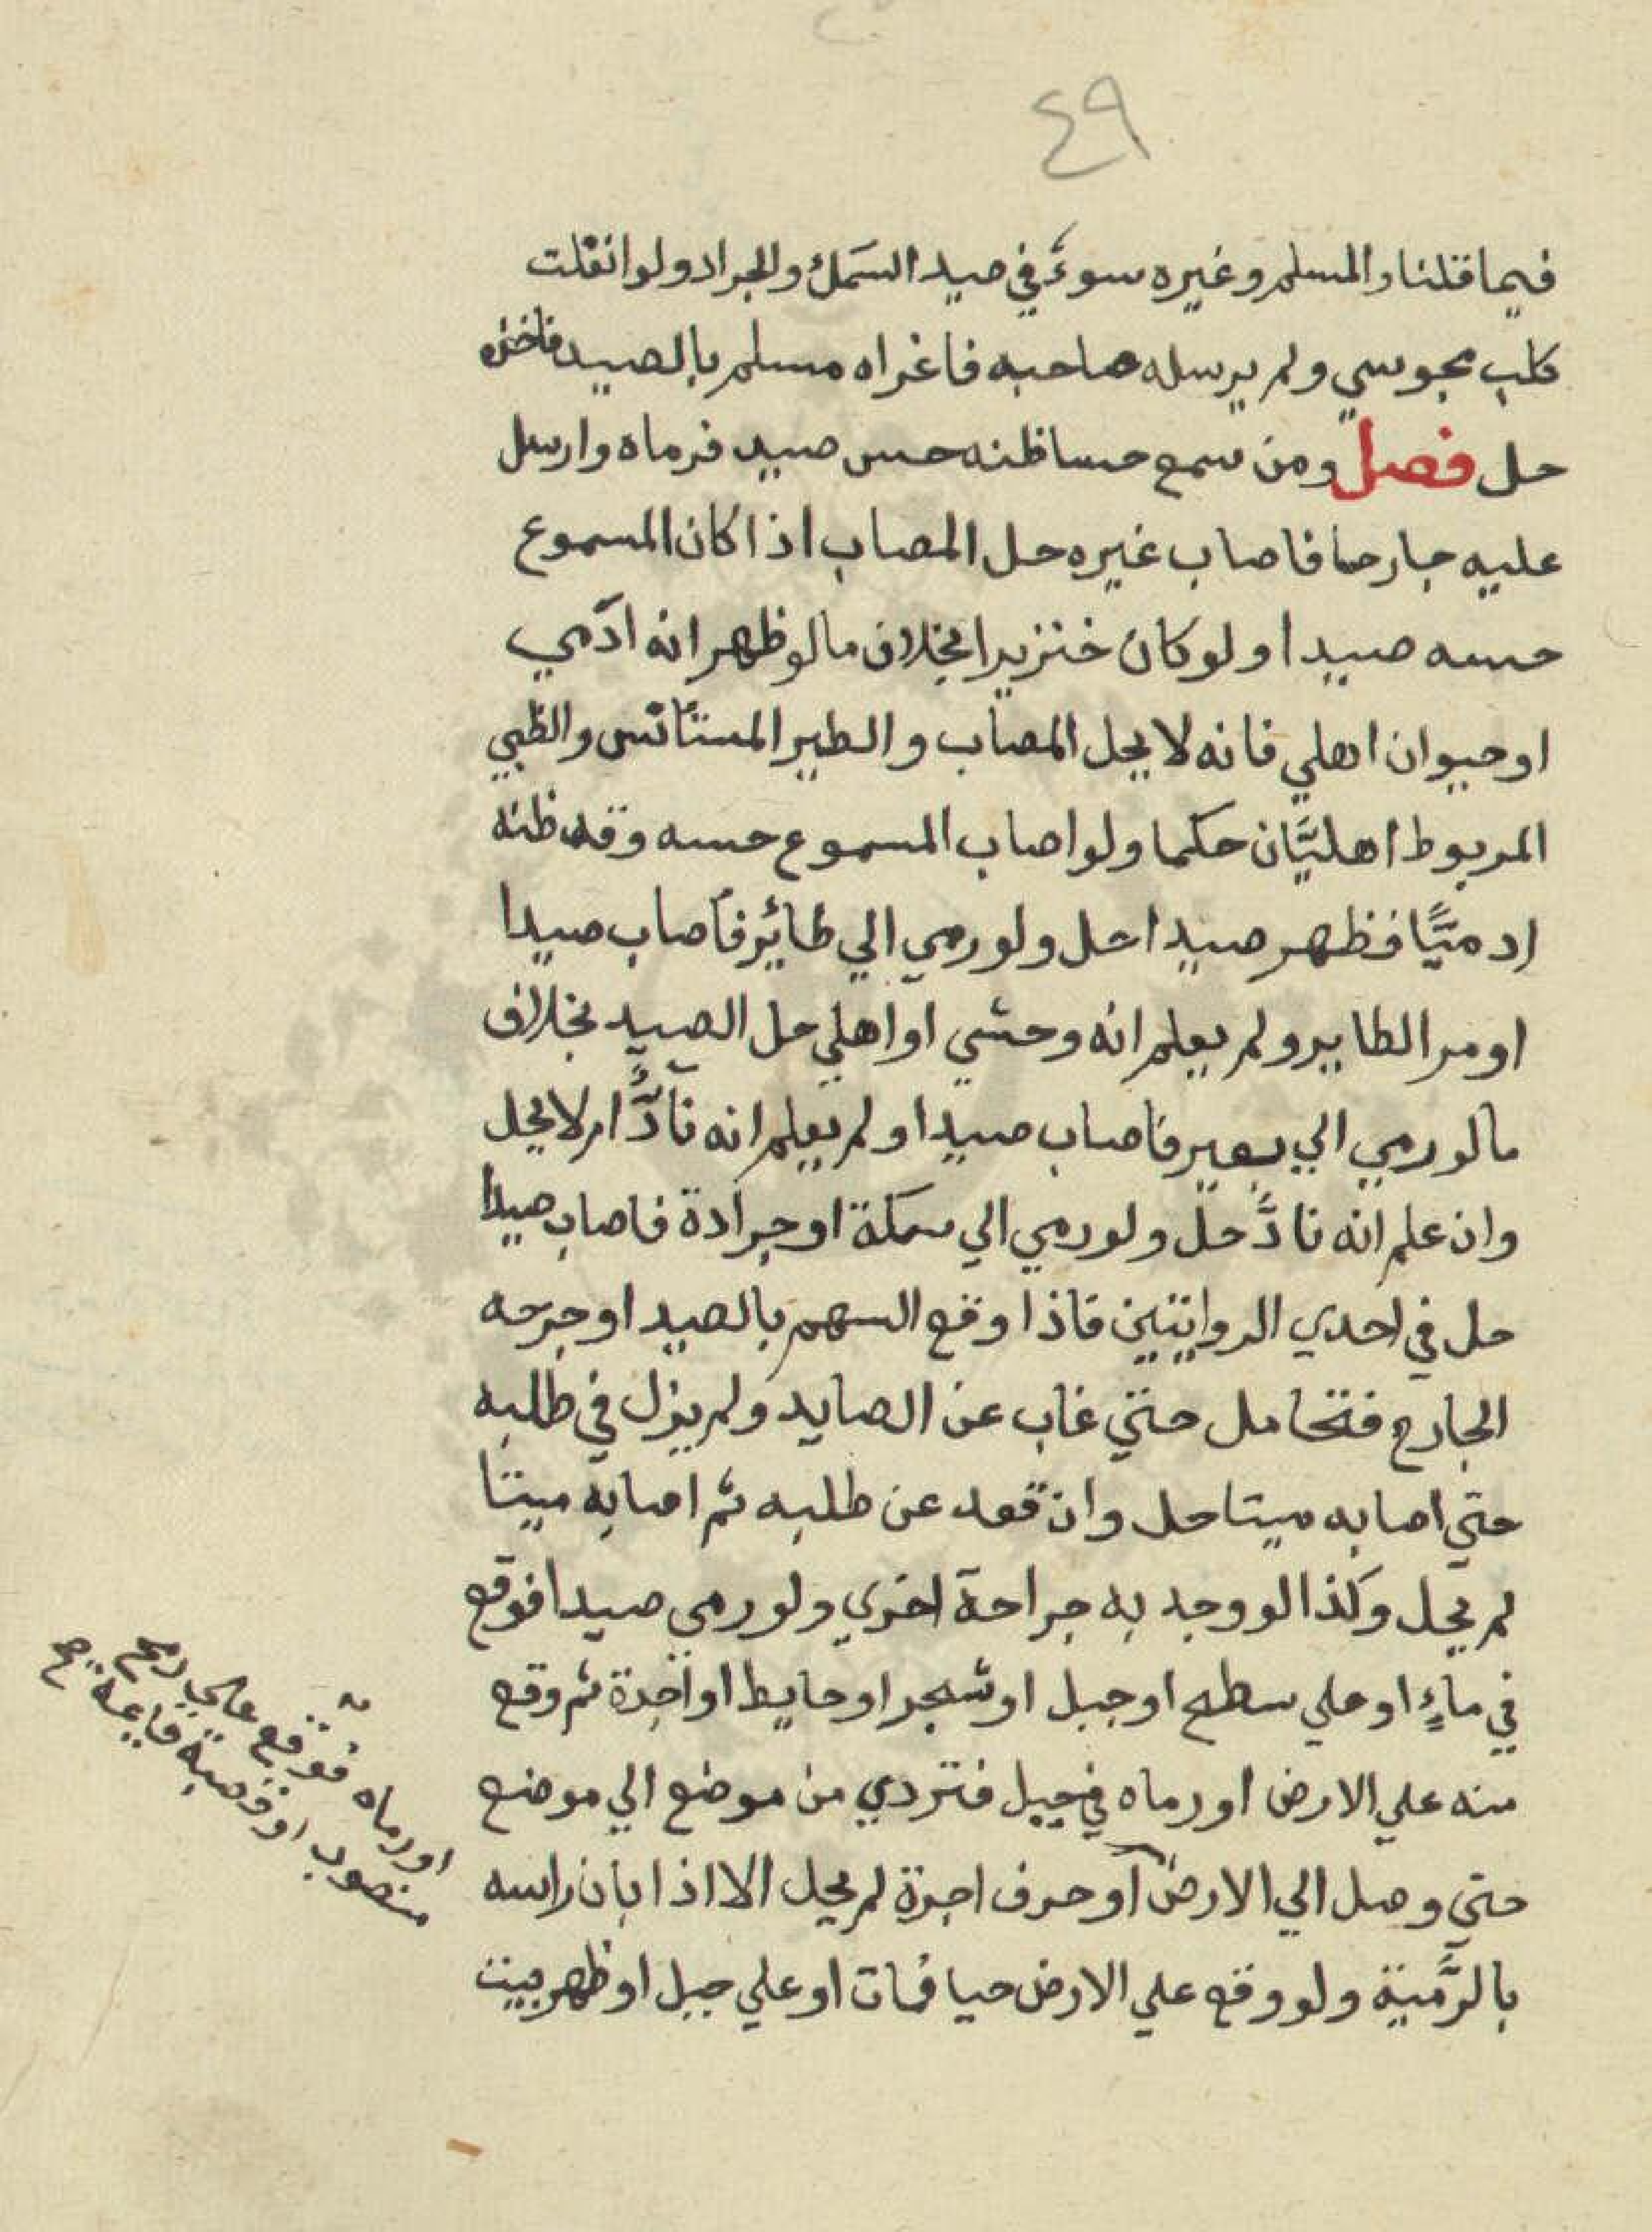 ٤٩
فيما قلنا والمسلم وغيره سوءً في صيد السمك والجراد ولو انفلت
كلب مجوسي ولم يرسله صاحبه فاغراه مسلم بالصيد فاخذه
حل فصل ومن سمع حسا ظنه حس صيد فرماه وارسل
عليه جارحا فاصاب غيره حل المصاب اذا كان المسموع
حسه صيدا ولو كان خنزيرا بخلاف ما لو ظهر انه آدمي
او حيوان اهلي فانه لا يحل المصاب والطير المستأنس والظبي
المربوط اهليَّان حكما ولو اصاب المسموع حسه وقد ظنه
ادميًّا فظهر صيدا حل ولو رمي الي طائر فأصاب صيدا
او مر الطاير ولم يعلم انه وحشي او اهلي حل الصيد بخلاف
ما لو رمي الي بعير فاصاب صيدا ولم يعلم انه نادٌّ ام لا يحل
وان علم انه نادَّ حل ولو رمي الي سمكة او جرادة فاصاب صيدا
حل في احدي الروايتين فاذا وقع السهم بالصيد او جرحه
الجارح فتحامل حتي غاب عن الصايد ولم يزل في طلبه
حتي اصابه ميتا حل وان قعد عن طلبه ثم اصابه ميتا
لم يحل وكذا لو وجد به جراحة اخري ولو رمي صيدا فوقع
في ماءٍ او علي سطح او جبل او شجر او حايط او آجرة ثم وقع
منه علي الارض او رماه في جبل فتردي من موضع الي موضع
حتي وصل الي الارض او حرف اجرة لم يحل الا اذا ابان راسه
بالرَّمية ولو وقع علي الارض حيا فمات او علي جبل او ظهر بيت
او رماه فوقع علي رمح
منصوب او قصبة قايمة صح